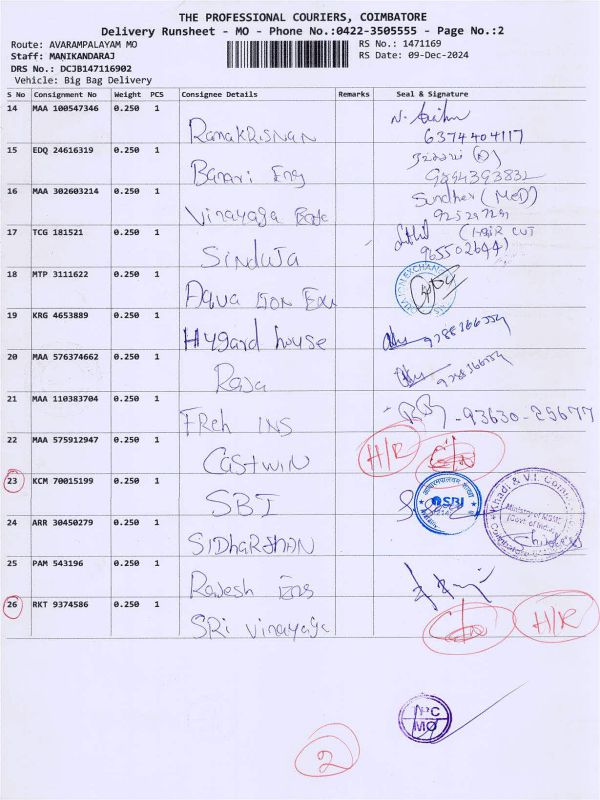 THE PROFESSIONAL COURIERS, COIMBATORE
Delivery Runsheet - MO - Phone No.:0422-3505555 - Page No.:2
Route: AVARAMPALAYAM MO RS No.: 1471169
Staff: MANIKANDARAJ RS Date: 09-Dec-2024
DRS No.: DCJB147116902
Vehicle: Big Bag Delivery
S No Consignment No Weight PCS Consignee Details Remarks Seal & Signature
14 MAA 100547346 0.250 1
RamakRisnan 6374404117
15 EDQ 24616319 0.250 1
Banari Eng
16 MAA 302603214 0.250 1 Sundher (MeD)
Vinayaga
17 TCG 181521 0.250 1 (HaiR CUT
Sinduja 9655026441
18 MTP 3111622 0.250 1
Aqua Ion Exc ION EXCHAN
19 KRG 4653889 0.250 1
Hygard house
20 MAA 576374662 0.250 1
Raja
21 MAA 110383704 0.250 1
FRch INS -93630-25677
22 MAA 575912947 0.250 1
Castwin H/R
23 KCM 70015199 0.250 1
SBI SBI Khadi & V.I. Ministry of MSME (Govt. of India) Coimbatore
24 ARR 30450279 0.250 1
SIDhARTHAN
25 PAM 543196 0.250 1
Rajesh Eng
26 RKT 9374586 0.250 1
SRi Vinayaga H/R
MO
2